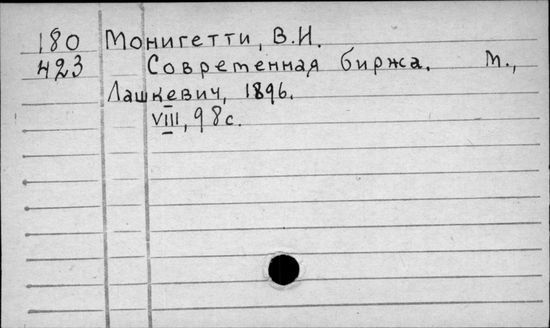 180 Монигетти, В.И.
423 Современная биржа. М.,
Лашкевич, 1896.
VIII, 98с.